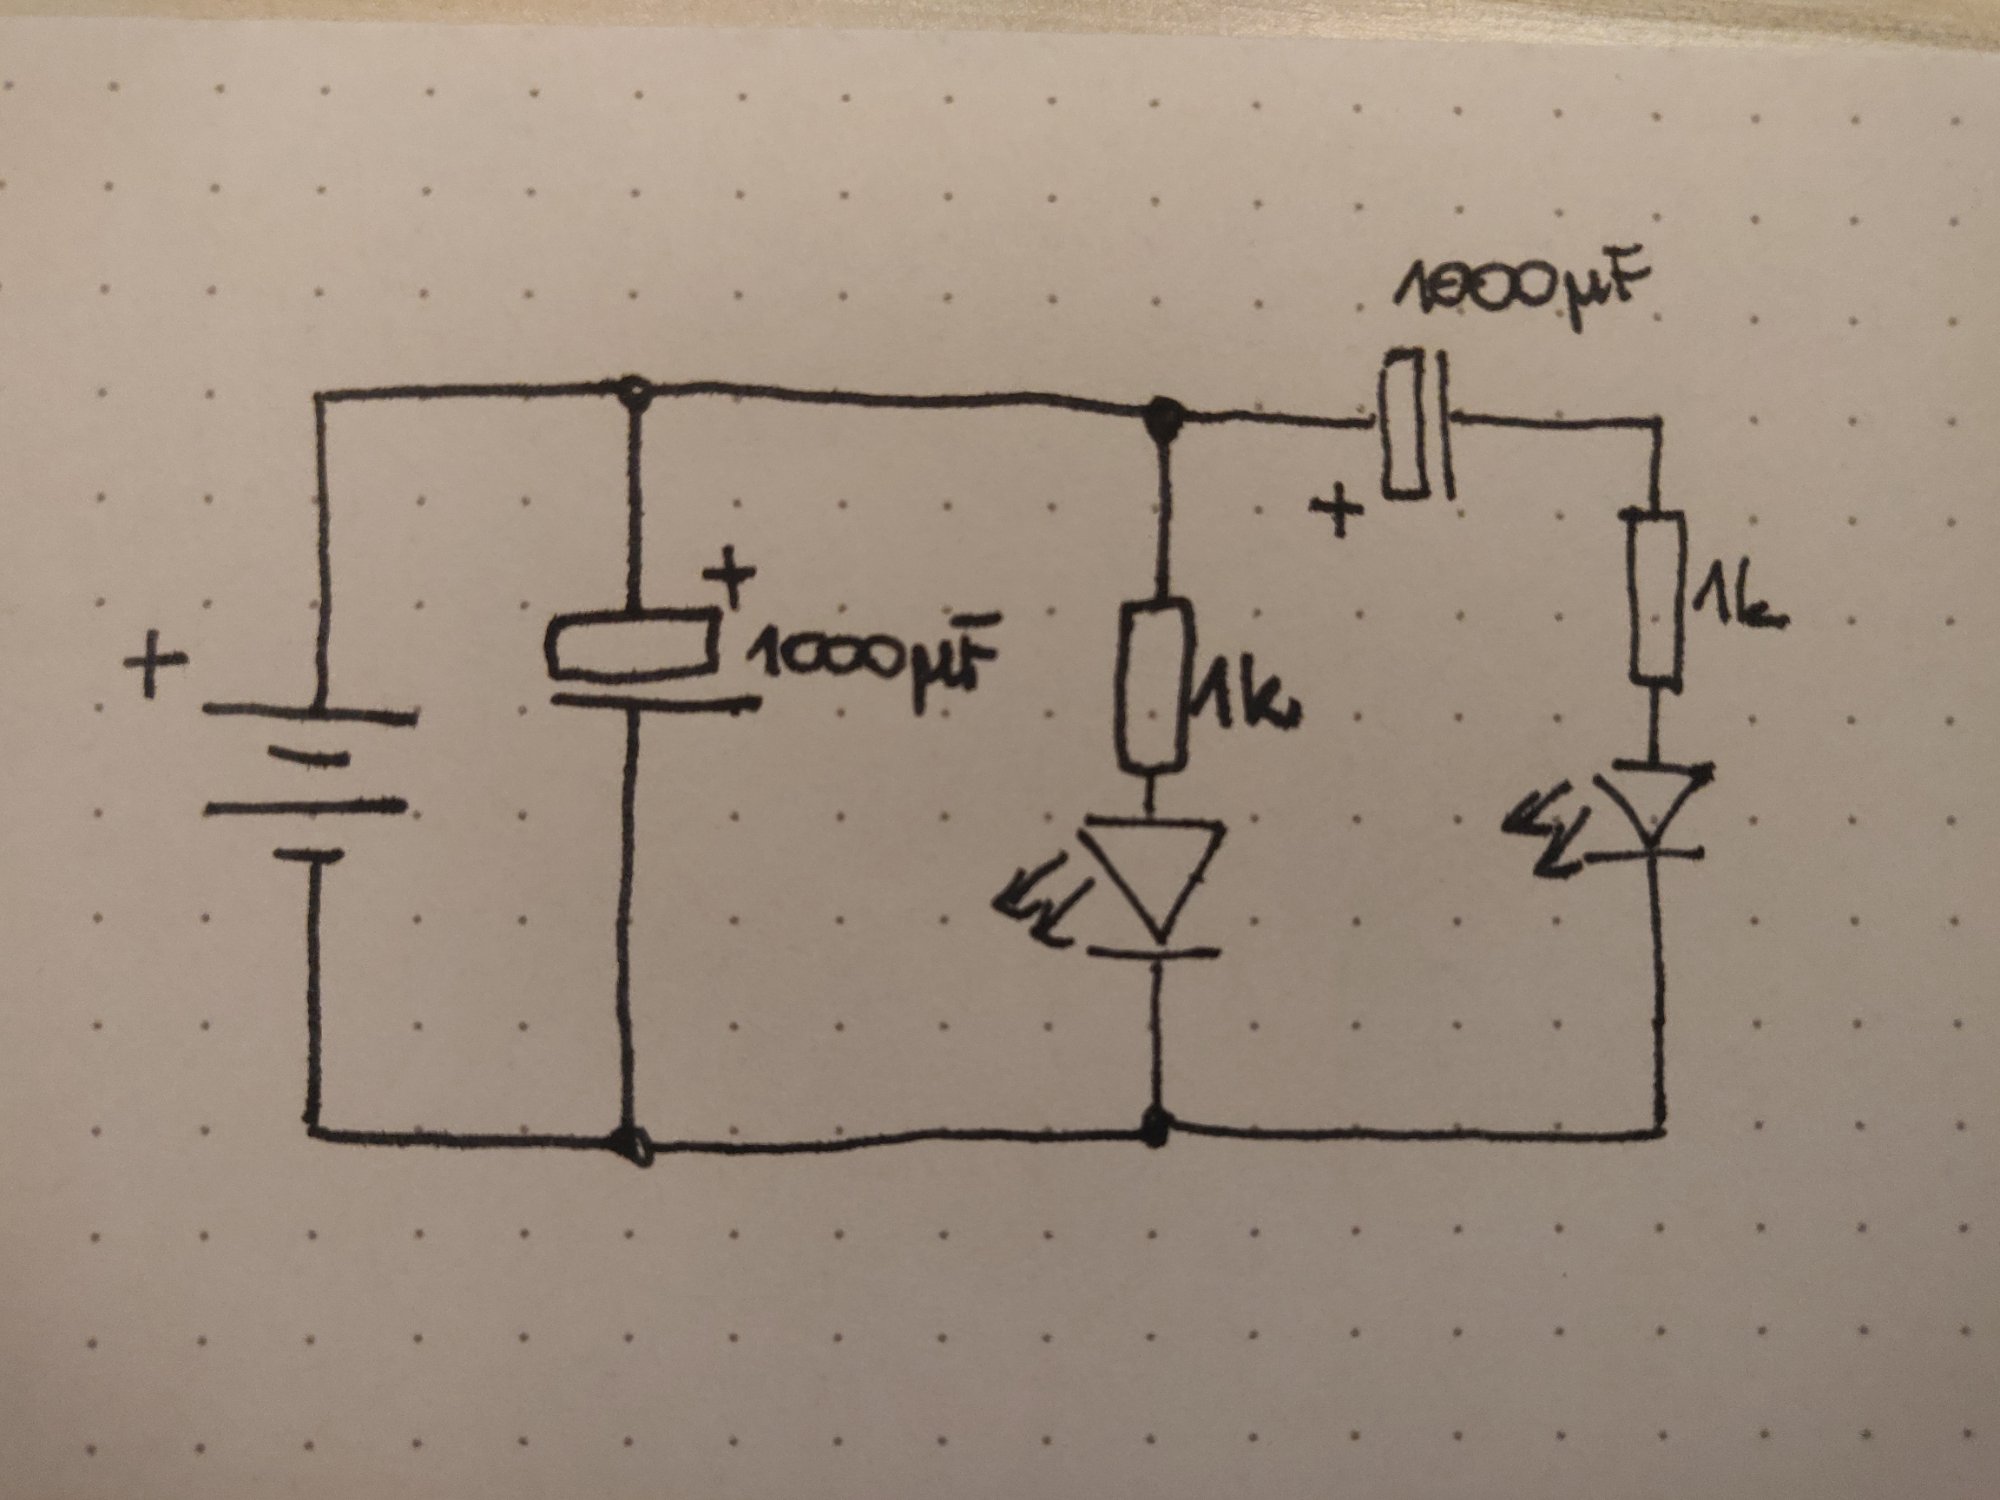 1000µF
+
1k
+
1000µF
+
1k